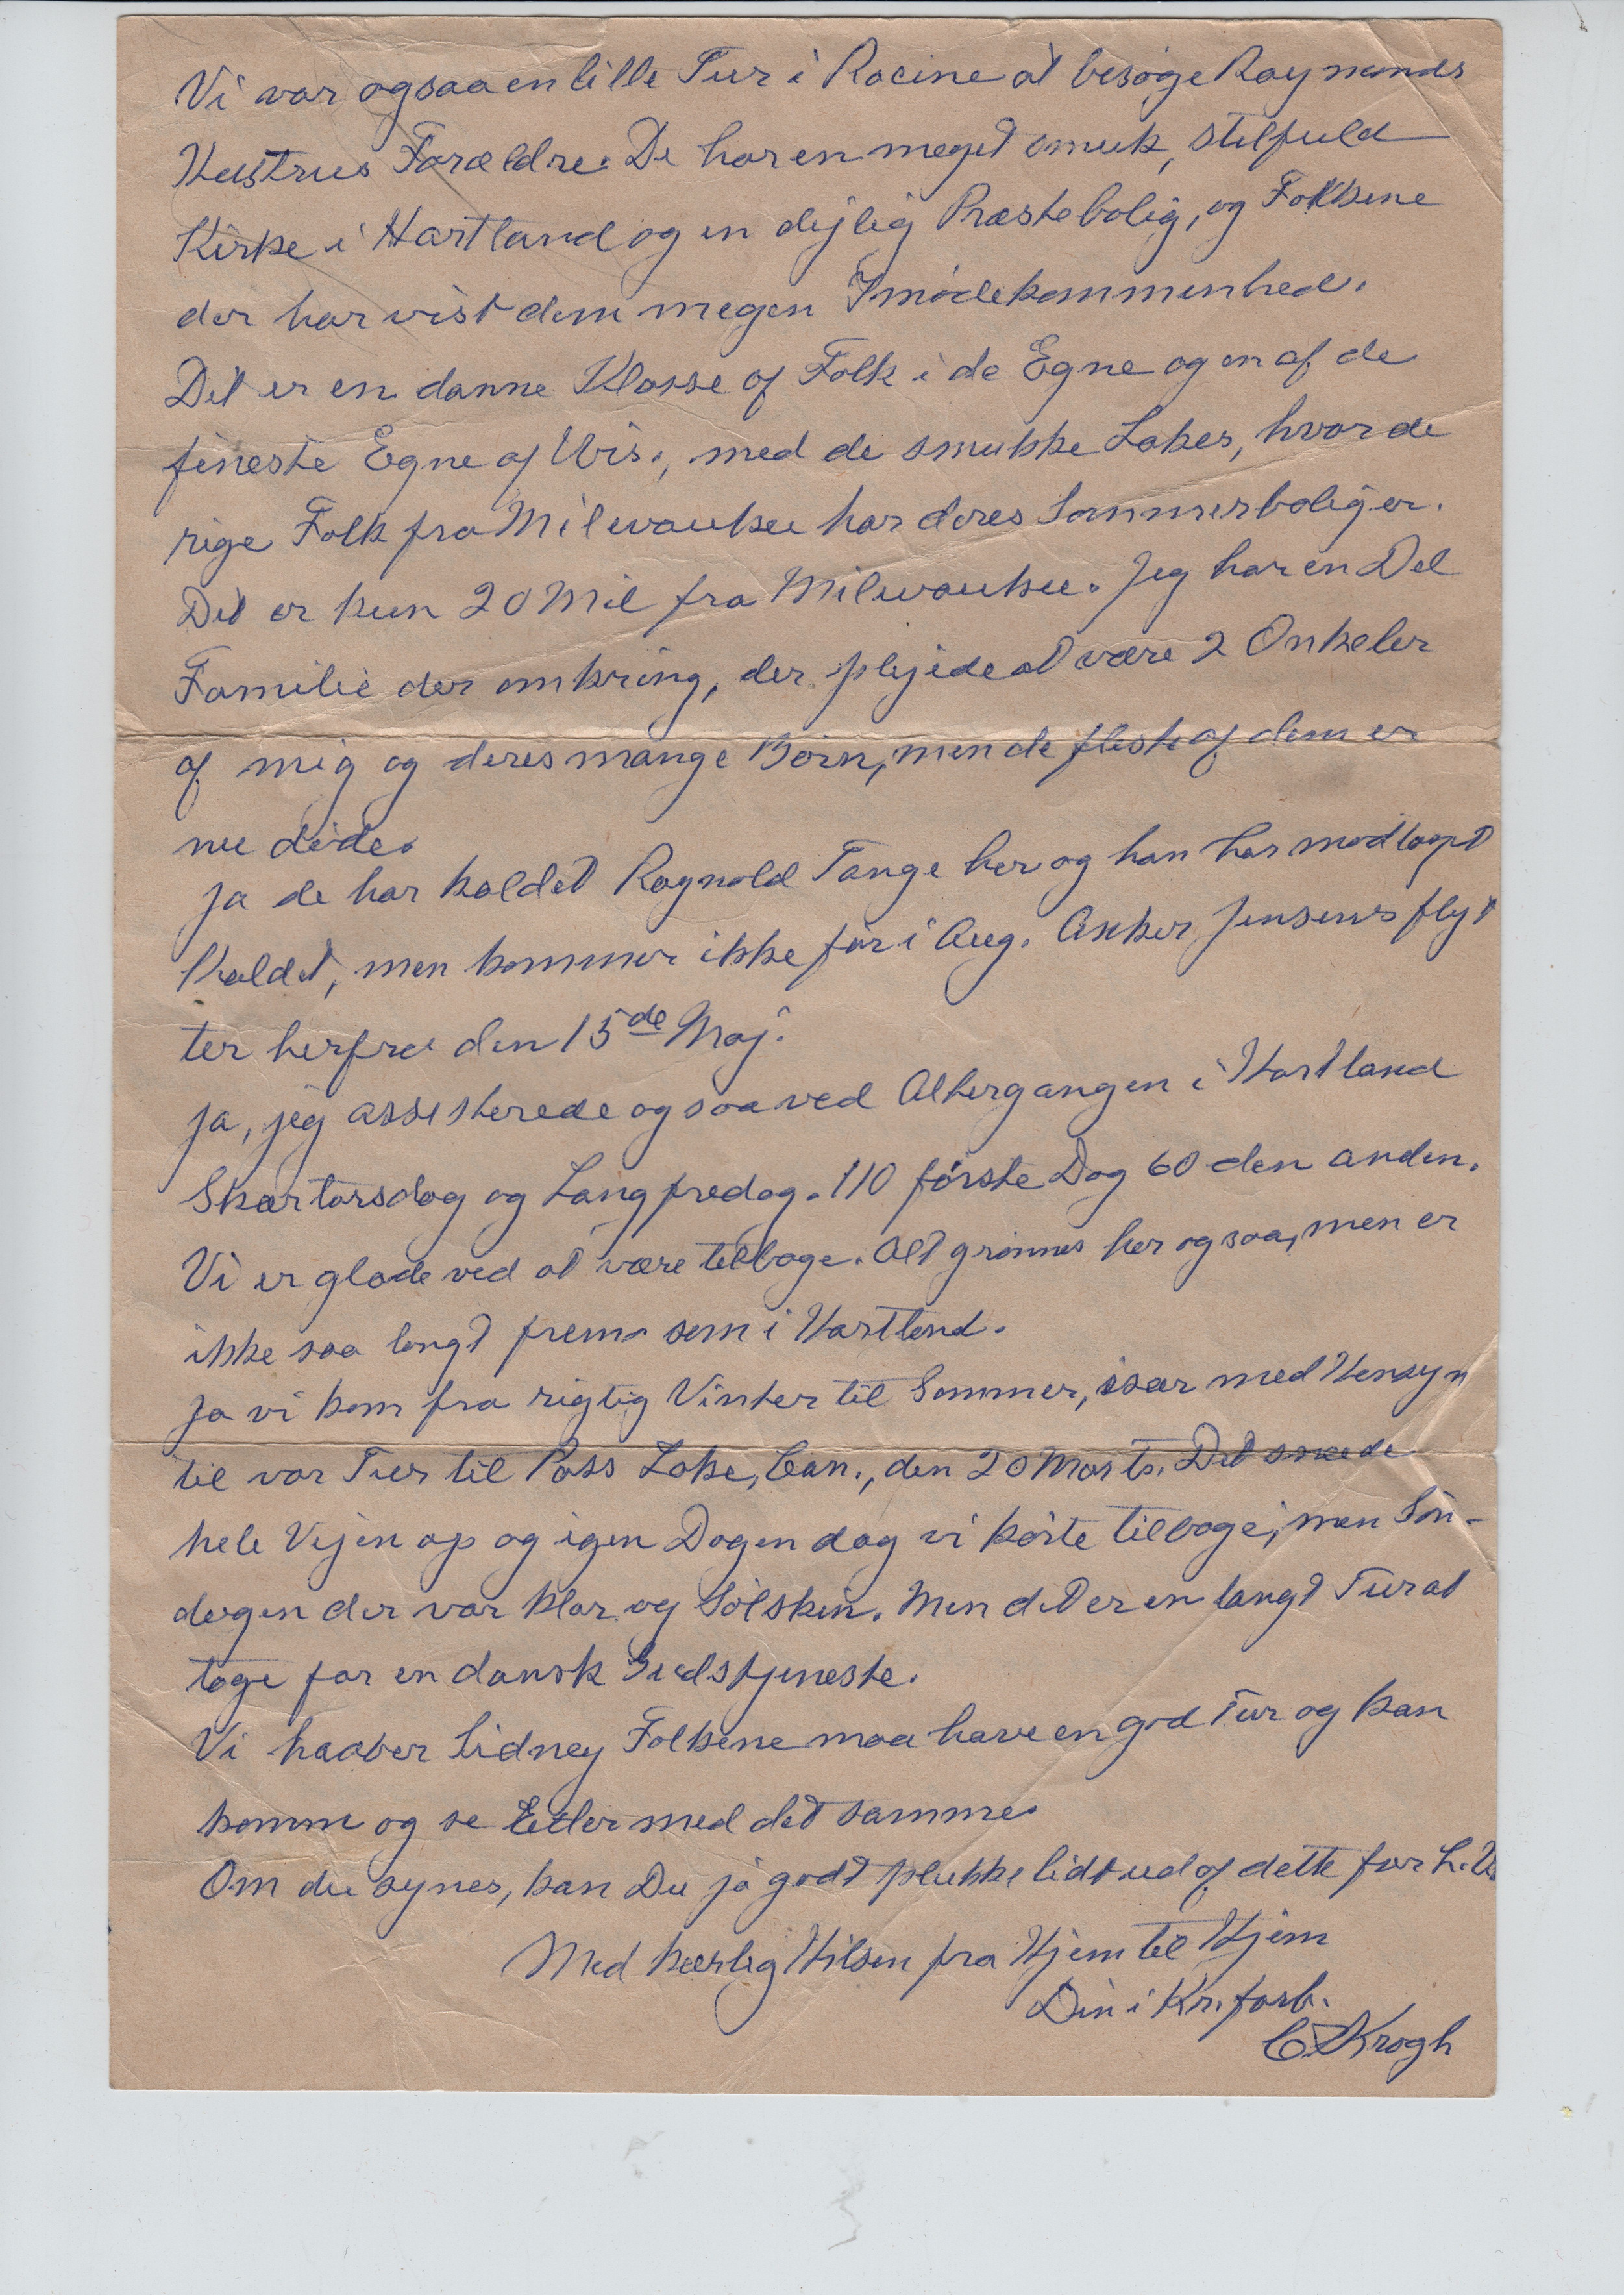 Vi var ogsaa en lille Tur i Racine at besøge Raymonds
Hustrus Forældre. De har en meget smuk, stilfuld
Kirke i Hartland og en dejlig Præstebolig, og Folkene
der har vist dem megen Imødekommenhed.
Det er en danne Klasse af Folk i de Egne og en af de
fineste Egne af Wis., med de smukke Lakes, hvor de
rige Folk fra Milwaukee har deres Sommerboliger.
Det er kun 20 Mil fra Milwaukee. Jeg har en Del
Familie der omkring, der plejede at være 2 Onkeler
af mig og deres mange Børn, men de fleste af dem er
nu døde.
Ja de har kaldet Ragnald Tange her og han har modtaget
Kaldet, men kommer ikke før i Aug. Anker Jensens flyt
ter herfra den 15de Maj.
Ja, jeg assisterede ogsaa ved Altergangen i Hartland
Skærtorsdag og Langfredag. 110 første Dag 60 den anden.
Vi er glade ved at være tilbage. Alt grønnes her ogsaa, men er
ikke saa langt frem som i Hartland.
Ja vi kom fra rigtig Vinter til Sommer, især med Hensyn
til vor Tur til Pass Lake, Can., den 20 Marts. Det sneede
hele Vejen op og igen Dagen dag vi kørte tilbage, men Søn-
dagen der var klar og Solskin. Men det er en langt Tur at
tage for en dansk Gudstjeneste.
Vi haaber Sidney Folkene maa have en god Tur og kan
komme og se Eder med det samme.
Om du synes, kan Du jo godt plukke lidt ud af dette for L.V.
Med kærlig Hilsen fra Hjem til Hjem
Din i Kr. forb.
Krogh